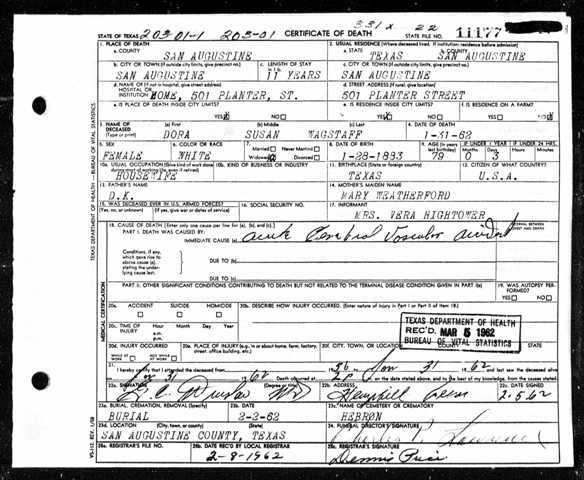 331 x 22
STATE OF TEXAS 203 01-1 203-01 CERTIFICATE OF DEATH STATE FILE NO. 11177
1. PLACE OF DEATH 2. USUAL RESIDENCE (Where deceased lived. If institution: residence before admission)
a. COUNTY a. STATE b. COUNTY
SAN AUGUSTINE TEXAS SAN AUGUSTINE
b. CITY OR TOWN (If outside city limits, give precinct no.) c. LENGTH OF STAY c. CITY OR TOWN (If outside city limits, give precinct no.)
SAN AUGUSTINE 11 YEARS SAN AUGUSTINE
d. NAME OF (If not in hospital, give street address) d. STREET ADDRESS (If rural, give location)
HOSPITAL OR
INSTITUTION HOME, 501 PLANTER, ST. 501 PLANTER STREET
e. IS PLACE OF DEATH INSIDE CITY LIMITS? e. IS RESIDENCE INSIDE CITY LIMITS? f. IS RESIDENCE ON A FARM?
YES NO YES NO YES NO
3. NAME OF DECEASED (a) First (b) Middle (c) Last 4. DATE OF DEATH
(Type or print) DORA SUSAN WAGSTAFF 1-31-62
5. SEX 6. COLOR OR RACE 7. Married Never Married 8. DATE OF BIRTH 9. AGE (In years last birthday) IF UNDER 1 YEAR IF UNDER 24 HRS
FEMALE WHITE Widowed Divorced 1-28-1883 79 0 3
10a. USUAL OCCUPATION 10b. KIND OF BUSINESS OR INDUSTRY 11. BIRTHPLACE (State or foreign country) 12. CITIZEN OF WHAT COUNTRY?
HOUSEWIFE TEXAS U.S.A.
13. FATHER'S NAME 14. MOTHER'S MAIDEN NAME
D.K. MARY WEATHERFORD
15. WAS DECEASED EVER IN U.S. ARMED FORCES? 16. SOCIAL SECURITY NO. 17. INFORMANT
(Yes, no, or unknown) (If yes, give war or dates of service) MRS. VERA HIGHTOWER
18. CAUSE OF DEATH (Enter only one cause per line for (a), (b), and (c).) INTERVAL BETWEEN ONSET AND DEATH
PART I. DEATH WAS CAUSED BY:
IMMEDIATE CAUSE (a) Cerebral Vascular
Conditions, if any, which gave rise to above cause (a), stating the underlying cause last. DUE TO (b)
DUE TO (c)
PART II. OTHER SIGNIFICANT CONDITIONS CONTRIBUTING TO DEATH BUT NOT RELATED TO THE TERMINAL DISEASE CONDITION GIVEN IN PART I(a) 19. WAS AUTOPSY PERFORMED?
YES NO
20a. ACCIDENT SUICIDE HOMICIDE 20b. DESCRIBE HOW INJURY OCCURRED. (Enter nature of injury in Part I or Part II of item 18.)
20c. TIME OF INJURY Hour Month Day Year
a.m.
p.m.
TEXAS DEPARTMENT OF HEALTH
REC'D MAR 5 1962
BUREAU OF VITAL STATISTICS
20d. INJURY OCCURRED 20e. PLACE OF INJURY (e.g., in or about home, farm, factory, street, office building, etc.) 20f. CITY, TOWN, OR LOCATION COUNTY
WHILE AT WORK NOT WHILE AT WORK
21. I hereby certify that I attended the deceased from 56 Jan 31 62
Jan 31 62 Death occurred at on the date stated above, and to the best of my knowledge, from the causes stated.
22a. SIGNATURE (Degree or title) 22b. ADDRESS 22c. DATE SIGNED
MD Hemphill Texas 2-5-62
23a. BURIAL, CREMATION, REMOVAL (Specify) 23b. DATE 23c. NAME OF CEMETERY OR CREMATORY
BURIAL 2-2-62 HEBRON
23d. LOCATION (City, town, or county) (State) 24. FUNERAL DIRECTOR'S SIGNATURE
SAN AUGUSTINE COUNTY, TEXAS Charles
25a. REGISTRAR'S FILE NO. 25b. DATE REC'D BY LOCAL REGISTRAR 25c. REGISTRAR'S SIGNATURE
2-8-1962 Dennis Price
TEXAS DEPARTMENT OF HEALTH — BUREAU OF VITAL STATISTICS
MEDICAL CERTIFICATION